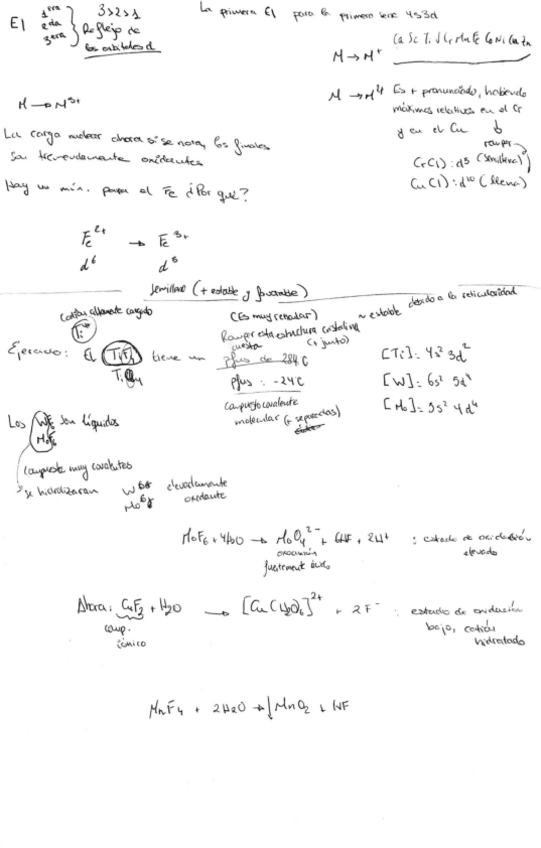 La primera EI para la primera serie 4s3d
EI 1era 2da 3era 3>2>1 Reflejo de los orbitales d
Ca Sc Ti V Cr Mn Fe Co Ni Cu Zn
M → M+
M → M3+
M → M Es + pronunciado, habiendo
máximos relativos en el Cr
y en el Cu
romper
Cr(I): d5 (semilleno)
Cu(I): d10 (lleno)
La carga nuclear ahora si se nota, los finales
son tremendamente oxidantes
Hay un min. para el Fe ¿Por qué?
Fe2+ → Fe3+
d6 d5
semilleno (+ estable y favorable)
Catión altamente cargado
Ti4+
(Es muy reticular) ~ estable debido a la reticularidad
Romper esta estructura cristalina cuesta (+ junto)
Ejercicio: El TiF4 tiene un pfus de 284°C
TiCl4 pfus: -24°C
compuesto covalente
molecular (+ separados)
[Ti]: 4s2 3d2
[W]: 6s2 5d4
[Mo]: 5s2 4d4
Los WF6 MoF6 son líquidos
compuesto muy covalentes
se hidrolizaran W6+ Mo6+ elevadamente oxidante
MoF6 + 4H2O → MoO4 2- + 6HF + 2H+ : estado de oxidación elevado
oxoanión
fuertemente ácido
Ahora: CuF2 + H2O → [Cu(H2O)6]2+ + 2F- : estado de oxidación bajo, catión hidratado
comp.
iónico
MnF4 + 2H2O → ↓MnO2 + HF